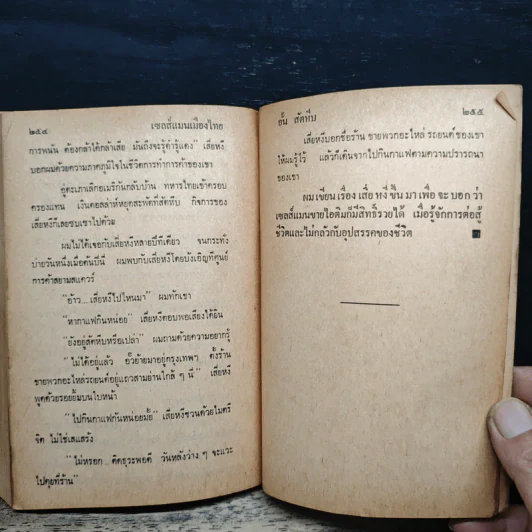 ๒๕๔ เซลส์แมนเมืองไทย
การพนัน ต้องกล้าได้กล้าเสีย มันถึงจะรู้ดำรู้แดง" เสี่ยหงี
บอกผมด้วยความภาคภูมิใจในชีวิตการทำการค้าของเขา
อู่ตะเภาเลิกอเมริกันกลับบ้าน ทหารไทยเข้าครอบ
ครองแทน เงินดอลล่าห์หยุดสะพัดที่สัตหีบ กิจการของ
เสี่ยหงีก็เลยซบเซาไปด้วย
ผมไม่ได้เจอกับเสี่ยหงีหลายปีทีเดียว จนกระทั่ง
บ่ายวันหนึ่งเมื่อต้นปีนี้ ผมพบกับเสี่ยหงีโดยบังเอิญที่ศูนย์
การค้าสยามสแควร์
"อ้าว...เสี่ยหงีไปไหนมา" ผมทักเขา
"หากาแฟกินหน่อย" เสี่ยหงีตอบพอเสียงได้ยิน
"ยังอยู่สัตหีบหรือเปล่า" ผมถามด้วยความอยากรู้
"ไม่ได้อยู่แล้ว อั๊วย้ายมาอยู่กรุงเทพฯ ตั้งร้าน
ขายพวกอะไหล่รถยนต์อยู่แถวสามย่านใกล้ ๆ นี่" เสี่ยหงี
พูดด้วยรอยยิ้มบนใบหน้า
"ไปกินกาแฟกันหน่อยมั้ย" เสี่ยหงีชวนด้วยไมตรี
จิต ไม่ใช่เสแสร้ง
"ไม่หรอก...ติดธุระพอดี วันหลังว่าง ๆ จะแวะ
ไปคุยที่ร้าน"
อั๋น สัตหีบ ๒๕๕
เสี่ยหงีบอกชื่อร้าน ขายพวกอะไหล่ รถยนต์ของเขา
ให้ผมรู้ไว้ แล้วก็เดินจากไปกินกาแฟตามความปรารถนา
ของเขา
ผมเขียนเรื่อง เสี่ย หงี ขึ้น มา เพื่อ จะ บอก ว่า
เซลส์แมนขายไอติมก็มีสิทธิ์รวยได้ เมื่อรู้จักการต่อสู้
ชีวิตและไม่กลัวกับอุปสรรคของชีวิต